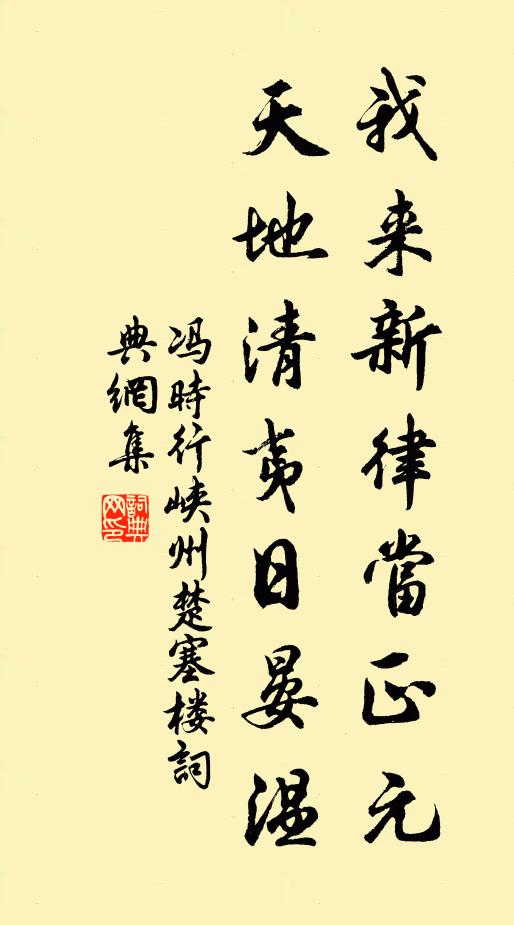 我来新律當正元
天地清夷日晏温
冯時行峡州楚塞楼詞
典網集
詞典
网印